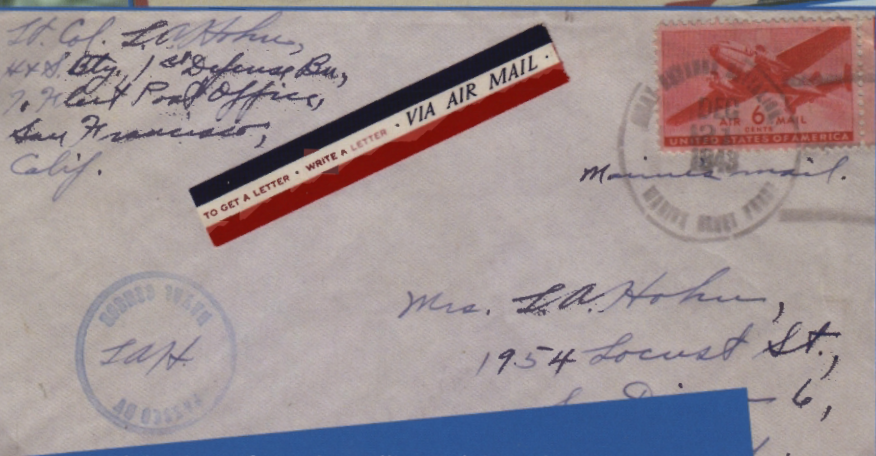 Lt. Col. L. A. Hohn,
H & S. Bty. 1st Defense Bn,
% Fleet Post Office,
San Francisco,
Calif.
TO GET A LETTER • WRITE A LETTER • VIA AIR MAIL •
6
CENTS
AIR MAIL
UNITED STATES OF AMERICA
DEC
1943
Marines mail.
NAVAL CENSOR
LAH.
PASSED BY
Mrs. L. A. Hohn,
1954 Locust St.,
6,